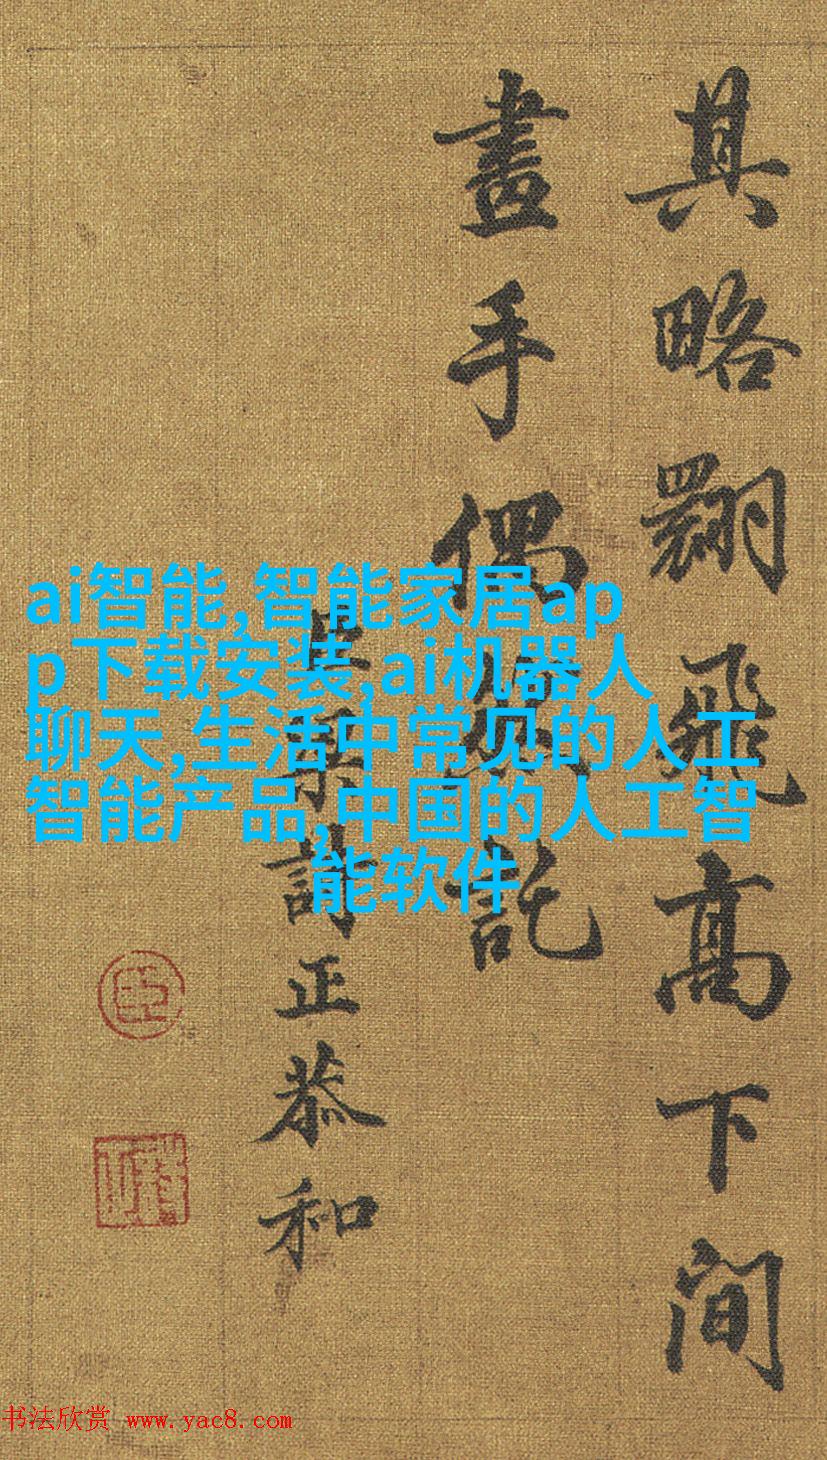 其略翾飛高下間
畫手偶託
臣梁詩正恭和
臣
ai智能,智能家居ap
p下载安装,ai机器人
聊天,生活中常见的人工
智能产品,中国的人工智
能软件
书法欣赏 www.yac8.com